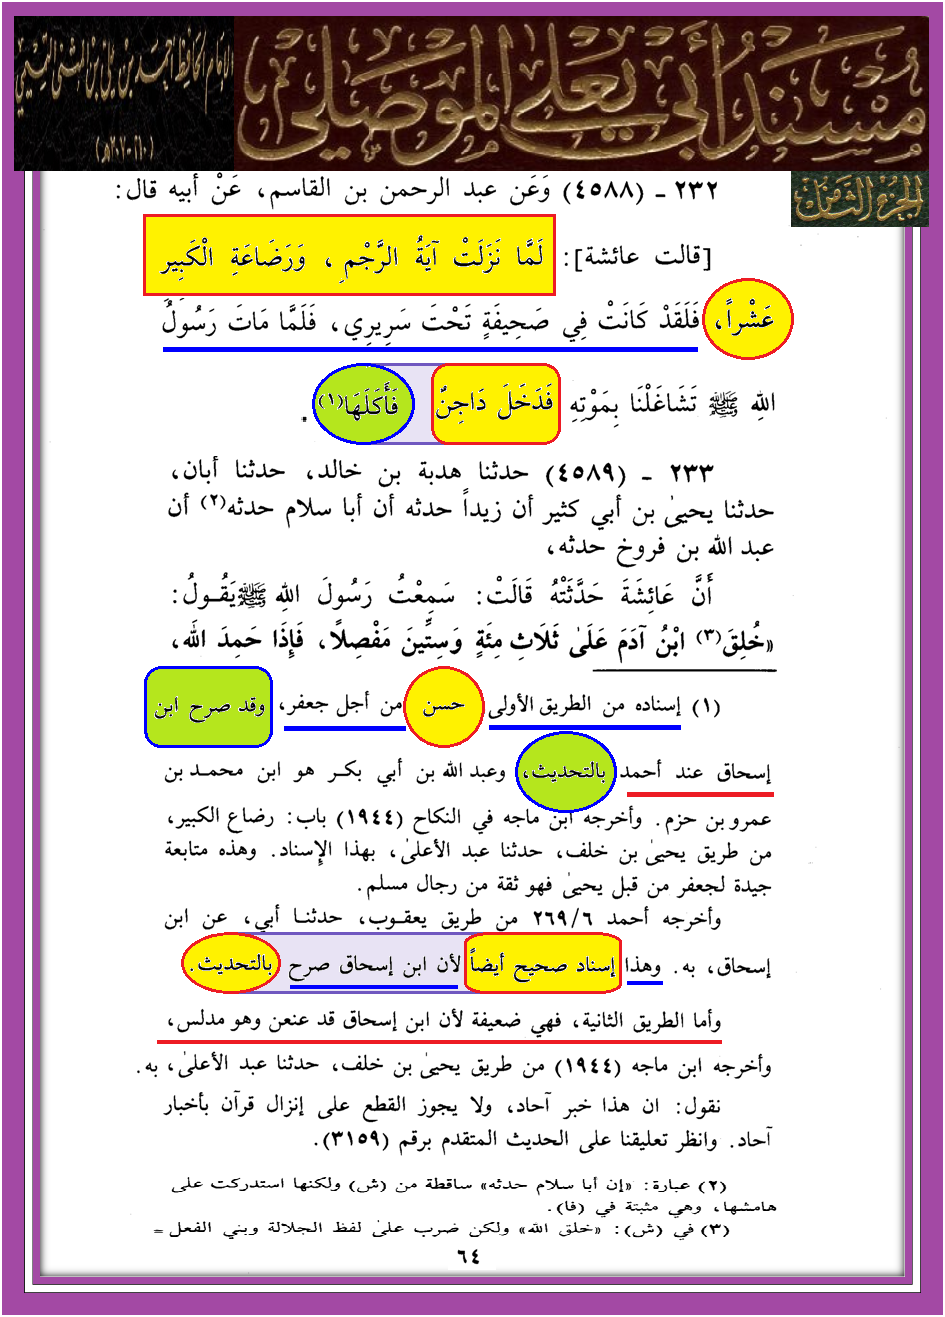 مسند أبي يعلى الموصلي
للإمام الحافظ أحمد بن علي بن المثنى التميمي
(٢١٠ - ٣٠٧هـ)
الجزء الثامن
٢٣٢ - (٤٥٨٨) وَعَن عبد الرحمن بن القاسم، عَنْ أبيه قال:
[قالت عائشة]: لَمَّا نَزَلَتْ آيَةُ الرَّجْمِ، وَرَضَاعَةِ الْكَبِيرِ
عَشْراً، فَلَقَدْ كَانَتْ فِي صَحِيفَةٍ تَحْتَ سَرِيرِي، فَلَمَّا مَاتَ رَسُولُ
اللهِ ﷺ تَشَاغَلْنَا بِمَوْتِهِ فَدَخَلَ دَاجِنٌ فَأَكَلَهَا(١).
٢٣٣ - (٤٥٨٩) حدثنا هدبة بن خالد، حدثنا أبان،
حدثنا يحيىٰ بن أبي كثير أن زيداً حدثه أن أبا سلام حدثه(٢) أن
عبد الله بن فروخ حدثه،
أَنَّ عَائِشَةَ حَدَّثَتْهُ قَالَتْ: سَمِعْتُ رَسُولَ اللهِ ﷺ يَقُولُ:
«خُلِقَ(٣) ابْنُ آدَمَ عَلَىٰ ثَلَاثِ مِئَةٍ وَسِتِّينَ مَفْصِلًا، فَإِذَا حَمِدَ اللهَ،
(١) إسناده من الطريق الأولى حسن من أجل جعفر، وقد صرح ابن
إسحاق عند أحمد بالتحديث، وعبد الله بن أبي بكر هو ابن محمد بن
عمرو بن حزم. وأخرجه ابن ماجه في النكاح (١٩٤٤) باب: رضاع الكبير،
من طريق يحيىٰ بن خلف، حدثنا عبد الأعلىٰ، بهذا الإسناد. وهذه متابعة
جيدة لجعفر من قبل يحيىٰ فهو ثقة من رجال مسلم.
وأخرجه أحمد ٢٦٩/٦ من طريق يعقوب، حدثنا أبي، عن ابن
إسحاق، به. وهذا إسناد صحيح أيضاً لأن ابن إسحاق صرح بالتحديث.
وأما الطريق الثانية، فهي ضعيفة لأن ابن إسحاق قد عنعن وهو مدلس،
وأخرجه ابن ماجه (١٩٤٤) من طريق يحيىٰ بن خلف، حدثنا عبد الأعلىٰ، به.
نقول: ان هذا خبر آحاد، ولا يجوز القطع على إنزال قرآن بأخبار
آحاد. وانظر تعليقنا على الحديث المتقدم برقم (٣١٥٩).
(٢) عبارة: «إن أبا سلام حدثه» ساقطة من (ش) ولكنها استدركت على
هامشها، وهي مثبتة في (فا).
(٣) في (ش): «خلق الله» ولكن ضرب علىٰ لفظ الجلالة وبني الفعل =
٦٤